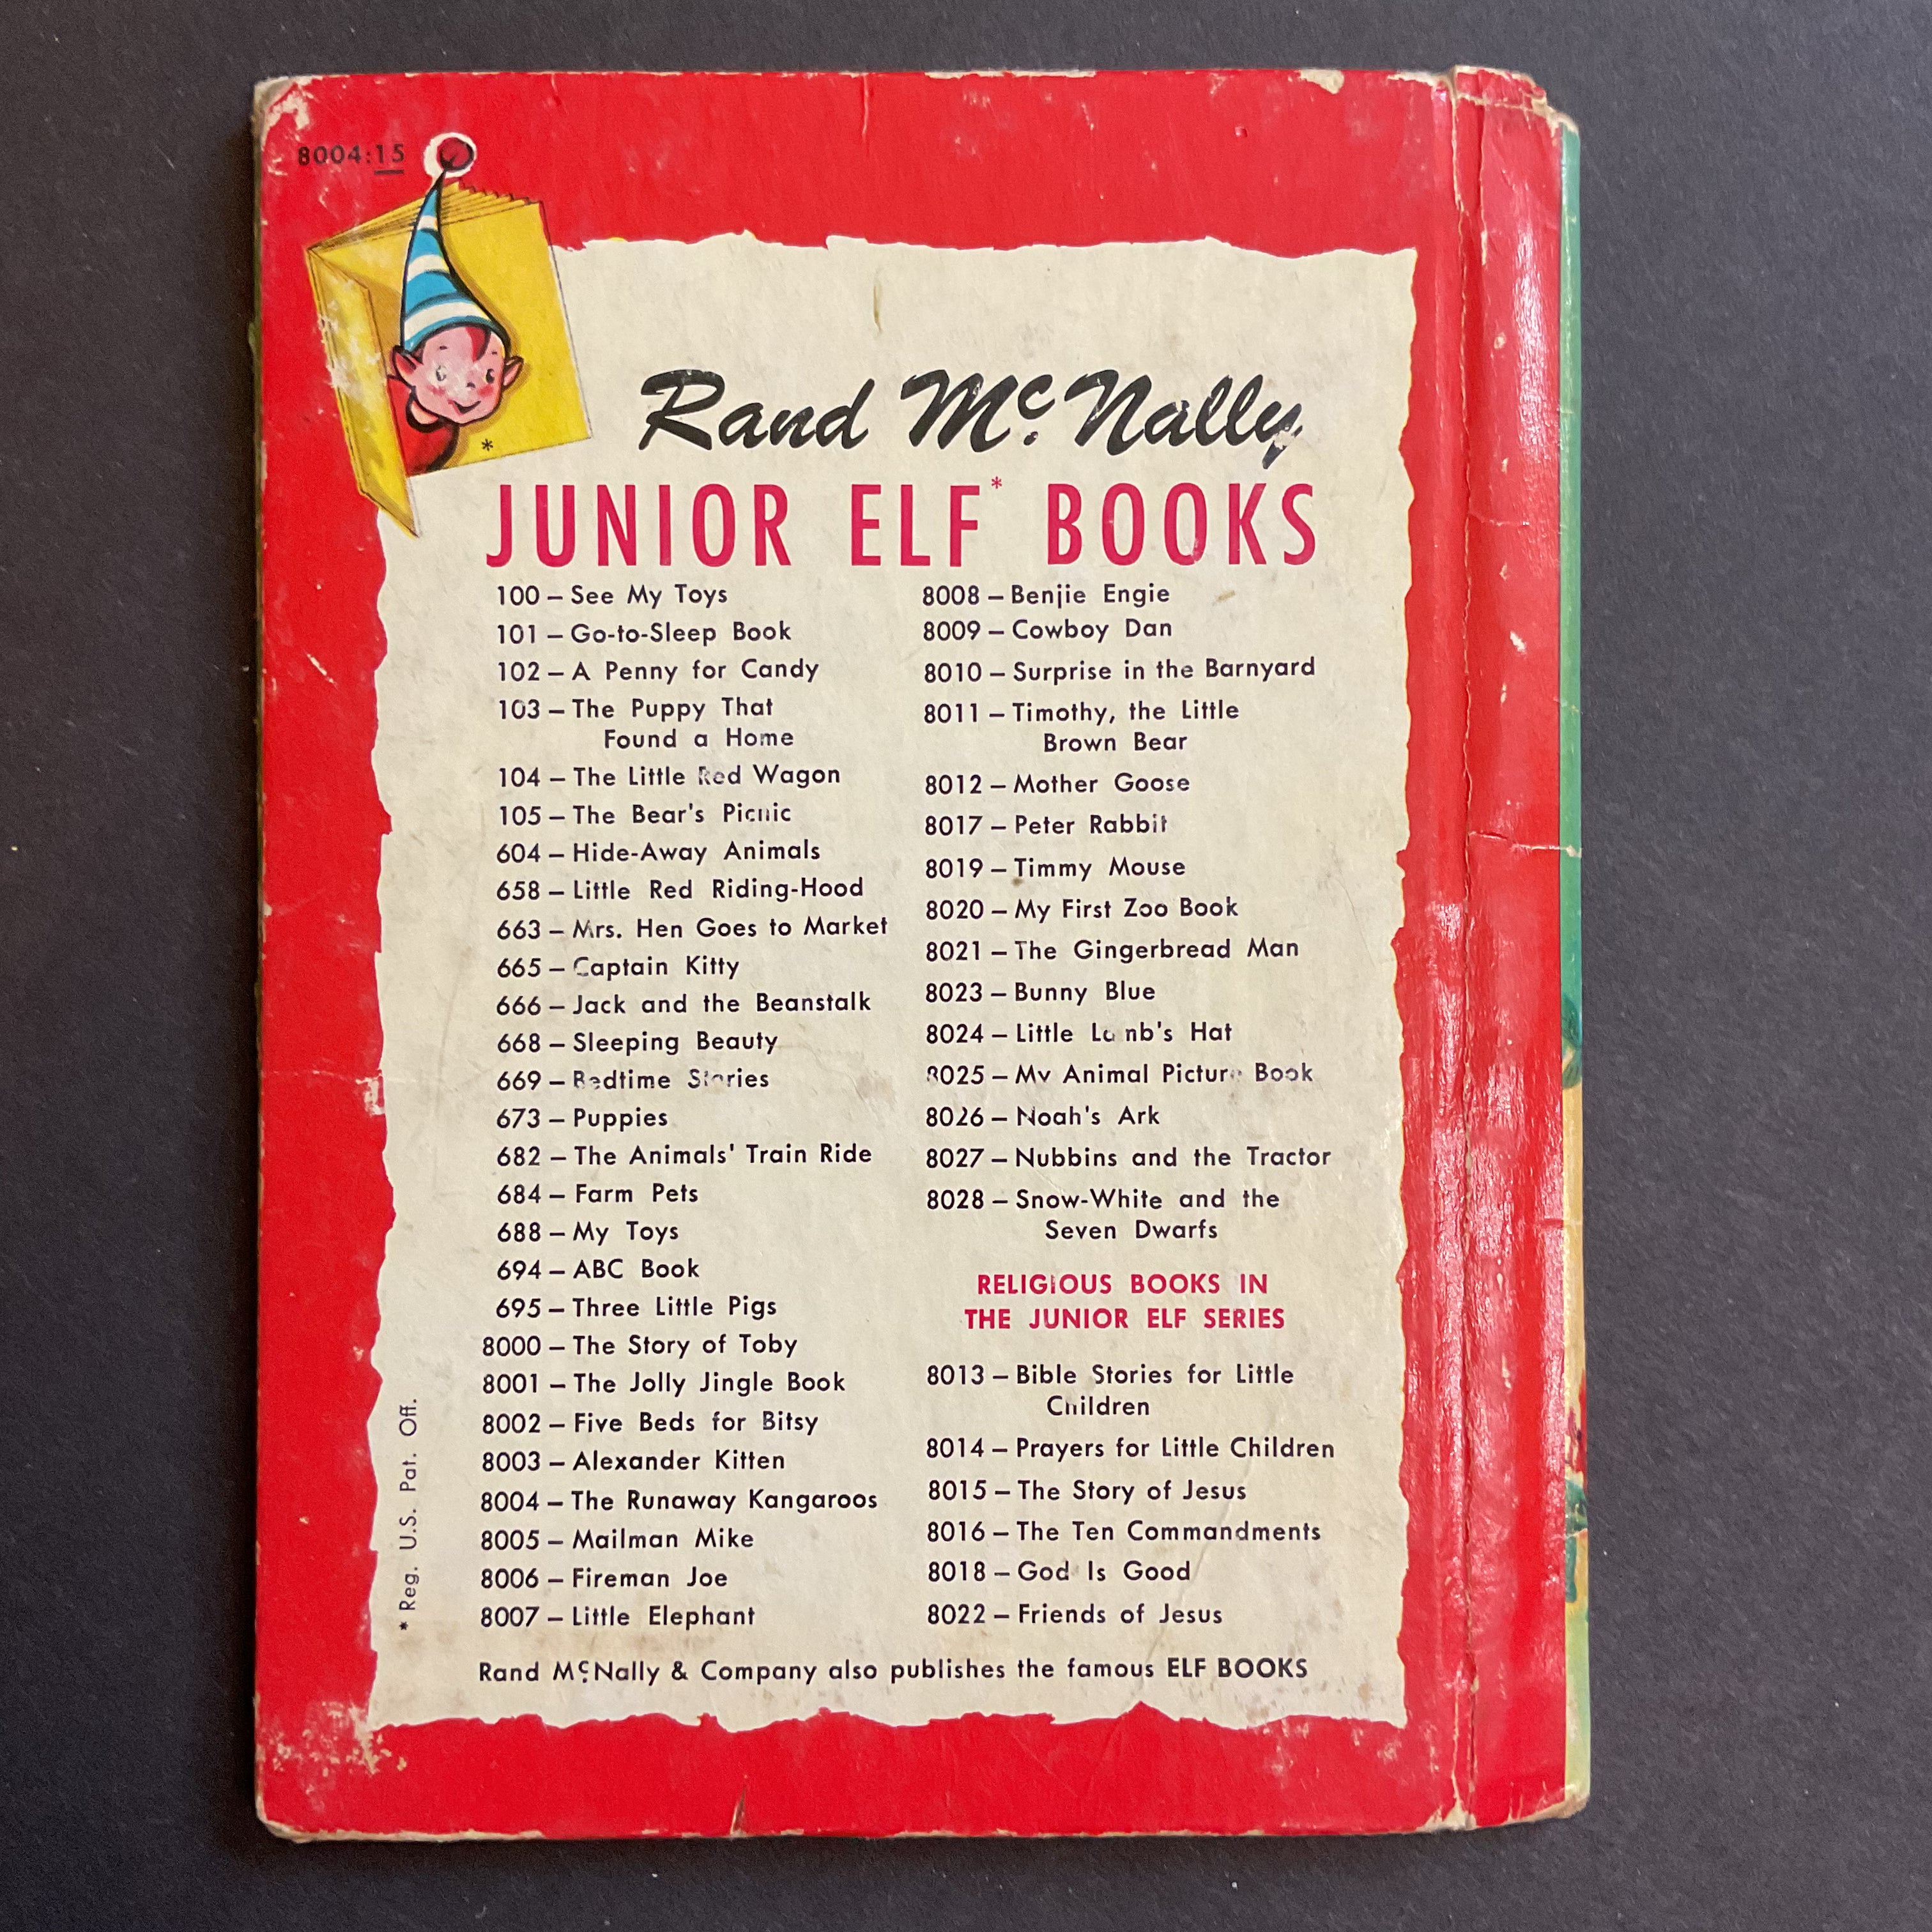 8004:15
*
Rand McNally
JUNIOR ELF* BOOKS
100 – See My Toys
101 – Go-to-Sleep Book
102 – A Penny for Candy
103 – The Puppy That
Found a Home
104 – The Little Red Wagon
105 – The Bear's Picnic
604 – Hide-Away Animals
658 – Little Red Riding-Hood
663 – Mrs. Hen Goes to Market
665 – Captain Kitty
666 – Jack and the Beanstalk
668 – Sleeping Beauty
669 – Bedtime Stories
673 – Puppies
682 – The Animals' Train Ride
684 – Farm Pets
688 – My Toys
694 – ABC Book
695 – Three Little Pigs
8000 – The Story of Toby
8001 – The Jolly Jingle Book
8002 – Five Beds for Bitsy
8003 – Alexander Kitten
8004 – The Runaway Kangaroos
8005 – Mailman Mike
8006 – Fireman Joe
8007 – Little Elephant
8008 – Benjie Engie
8009 – Cowboy Dan
8010 – Surprise in the Barnyard
8011 – Timothy, the Little
Brown Bear
8012 – Mother Goose
8017 – Peter Rabbit
8019 – Timmy Mouse
8020 – My First Zoo Book
8021 – The Gingerbread Man
8023 – Bunny Blue
8024 – Little Lamb's Hat
8025 – My Animal Picture Book
8026 – Noah's Ark
8027 – Nubbins and the Tractor
8028 – Snow-White and the
Seven Dwarfs
RELIGIOUS BOOKS IN
THE JUNIOR ELF SERIES
8013 – Bible Stories for Little
Children
8014 – Prayers for Little Children
8015 – The Story of Jesus
8016 – The Ten Commandments
8018 – God Is Good
8022 – Friends of Jesus
Rand McNally & Company also publishes the famous ELF BOOKS
* Reg. U.S. Pat. Off.